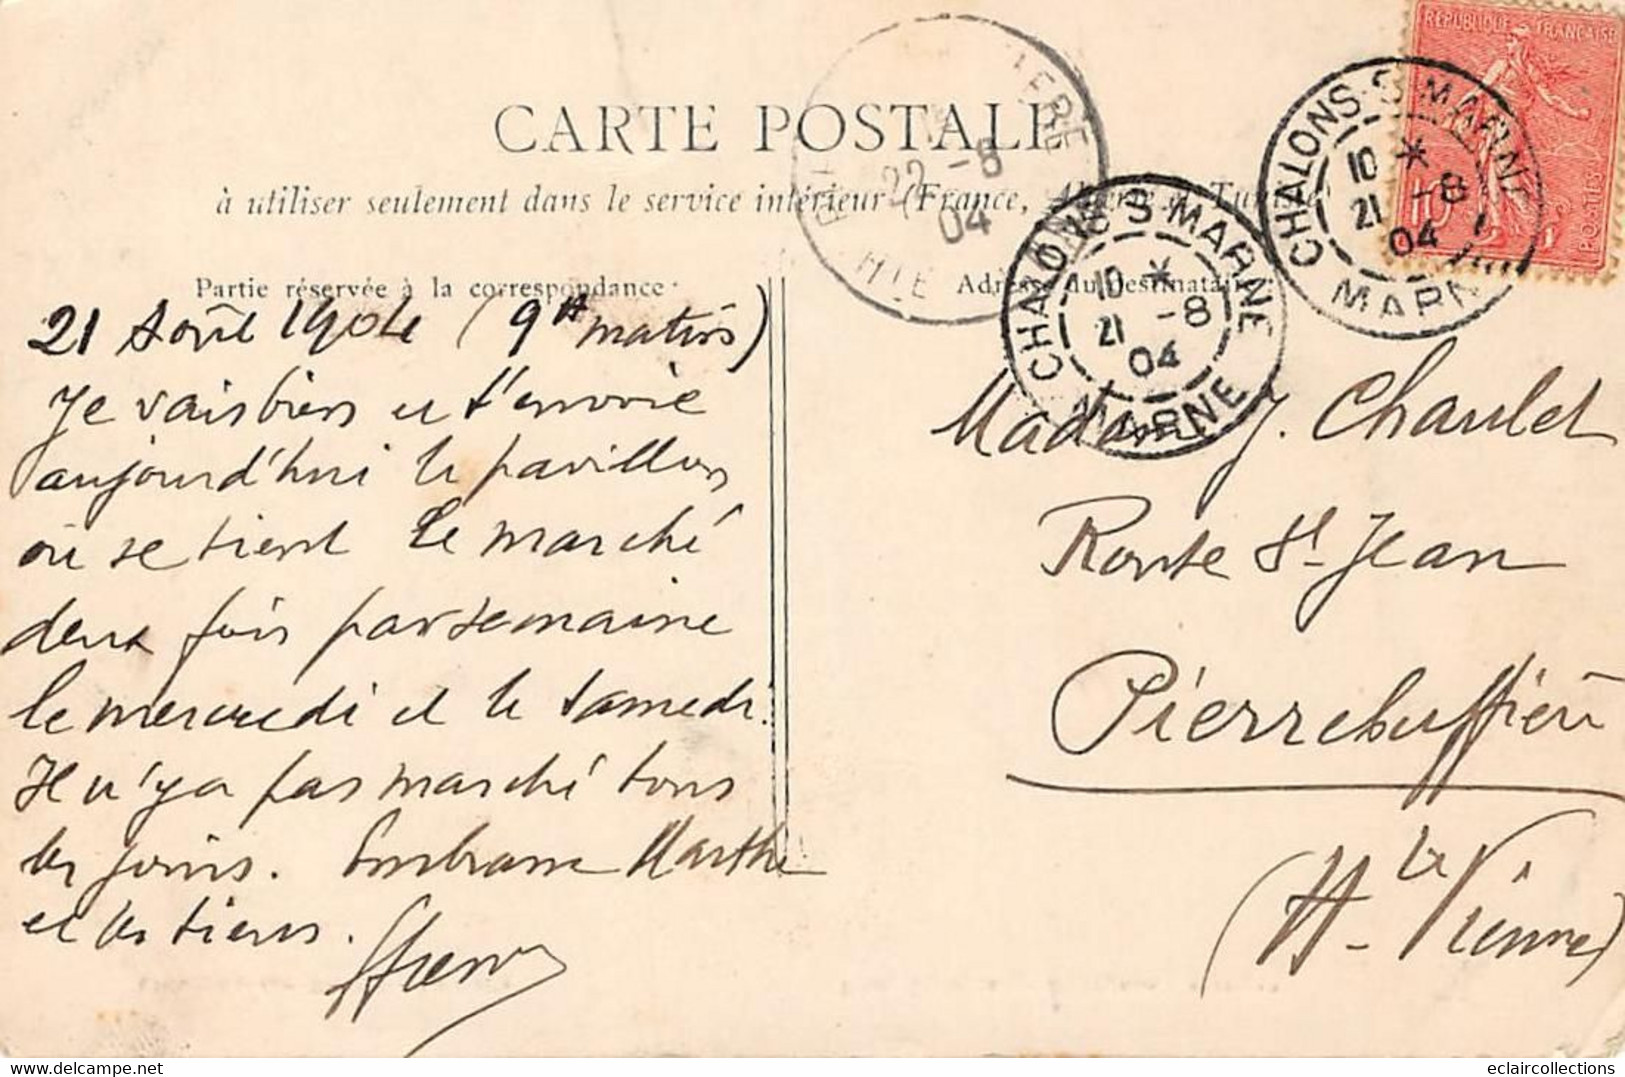 RÉPUBLIQUE FRANÇAISE
10
POSTES
CHALONS-S-MARNE
10 *
21 -8
04
MARNE
CARTE POSTALE
22 -8
04
HTE
à utiliser seulement dans le service intérieur (France, Algérie & Tunisie)
CHALONS-S-MARNE
10 *
21 -8
04
MARNE
Partie réservée à la correspondance.
Adresse du Destinataire.
21 Août 1904 (9h matin)
Je vais bien et t'envoie
aujourd'hui le pavillon
où se tient le marché
deux fois par semaine
le mercredi et le samedi.
Il n'y a pas marché tous
les jours. Embrasse Marthe
et les tiens.
Madame J. Chaulet
Route St Jean
Pierrebuffière
(Hte Vienne)
eclaircollections
delcampe.net